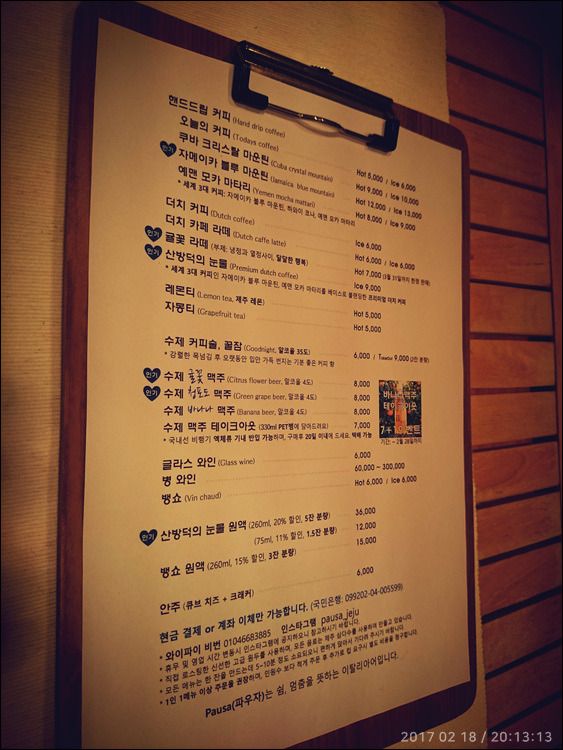 핸드드립 커피 (Hand drip coffee)
오늘의 커피 (Todays coffee) Hot 5,000 / Ice 6,000
쿠바 크리스탈 마운틴 (Cuba crystal mountain) Hot 9,000 / Ice 10,000
인기 자메이카 블루 마운틴 (Jamaica blue mountain) Hot 12,000 / Ice 13,000
예맨 모카 마타리 (Yemen mocha mattari) Hot 8,000 / Ice 9,000
* 세계 3대 커피: 자메이카 블루 마운틴, 하와이 코나, 예맨 모카 마타리
더치 커피 (Dutch coffee) Ice 6,000
더치 카페 라떼 (Dutch caffe latte) Hot 6,000 / Ice 6,000
인기 귤꽃 라떼 (부제: 냉정과 열정사이, 달달한 행복) Hot 7,000 (3월 31일까지 한정 판매)
인기 산방덕의 눈물 (Premium dutch coffee) Ice 9,000
* 세계 3대 커피인 자메이카 블루 마운틴, 예맨 모카 마타리를 베이스로 블렌딩한 프리미엄 더치 커피
레몬티 (Lemon tea, 제주 레몬) Hot 5,000
자몽티 (Grapefruit tea) Hot 5,000
수제 커피술, 꿀잠 (Goodnight, 알코올 35도) 6,000 / Takeout 9,000 (2잔 분량)
* 강렬한 목넘김 후 오랫동안 입안 가득 번지는 기분 좋은 커피 향
인기 수제 귤꽃 맥주 (Citrus flower beer, 알코올 4도) 8,000
인기 수제 청포도 맥주 (Green grape beer, 알코올 4도) 8,000
수제 바나나 맥주 (Banana beer, 알코올 4도) 8,000
수제 맥주 테이크아웃 (330ml PET병에 담아드려요) 7,000
* 국내선 비행기 액체류 기내 반입 가능하며, 구매후 20일 이내에 드세요. 택배 가능
바나나맥주
테이크아웃
7+1이벤트
기간: ~ 2월 28일까지
글라스 와인 (Glass wine) 6,000
병 와인 60,000 ~ 300,000
뱅쇼 (Vin chaud) Hot 6,000 / Ice 6,000
인기 산방덕의 눈물 원액 (260ml, 20% 할인, 5잔 분량) 36,000
(75ml, 11% 할인, 1.5잔 분량) 12,000
뱅쇼 원액 (260ml, 15% 할인, 3잔 분량) 15,000
안주 (큐브 치즈 + 크래커) 6,000
현금 결제 or 계좌 이체만 가능합니다. (국민은행: 099202-04-005599)
* 와이파이 비번 01046683885 인스타그램 pausa_jeju
* 휴무 및 영업 시간 변동시 인스타그램에 공지하오니 참고하시기 바랍니다.
* 직접 로스팅한 신선한 고급 원두를 사용하며, 모든 음료는 제주 삼다수를 사용하여 만들고 있습니다.
* 모든 메뉴는 한 잔을 만드는데 5~10분 정도 소요되오니 편하게 앉아서 기다려 주시기 바랍니다.
* 1인 1메뉴 이상 주문을 권장하며, 인원수 보다 적게 주문 후 추가로 컵 요구시 별도 비용을 청구합니다.
Pausa(파우자)는 쉼, 멈춤을 뜻하는 이탈리아어입니다.
2017 02 18 / 20:13:13